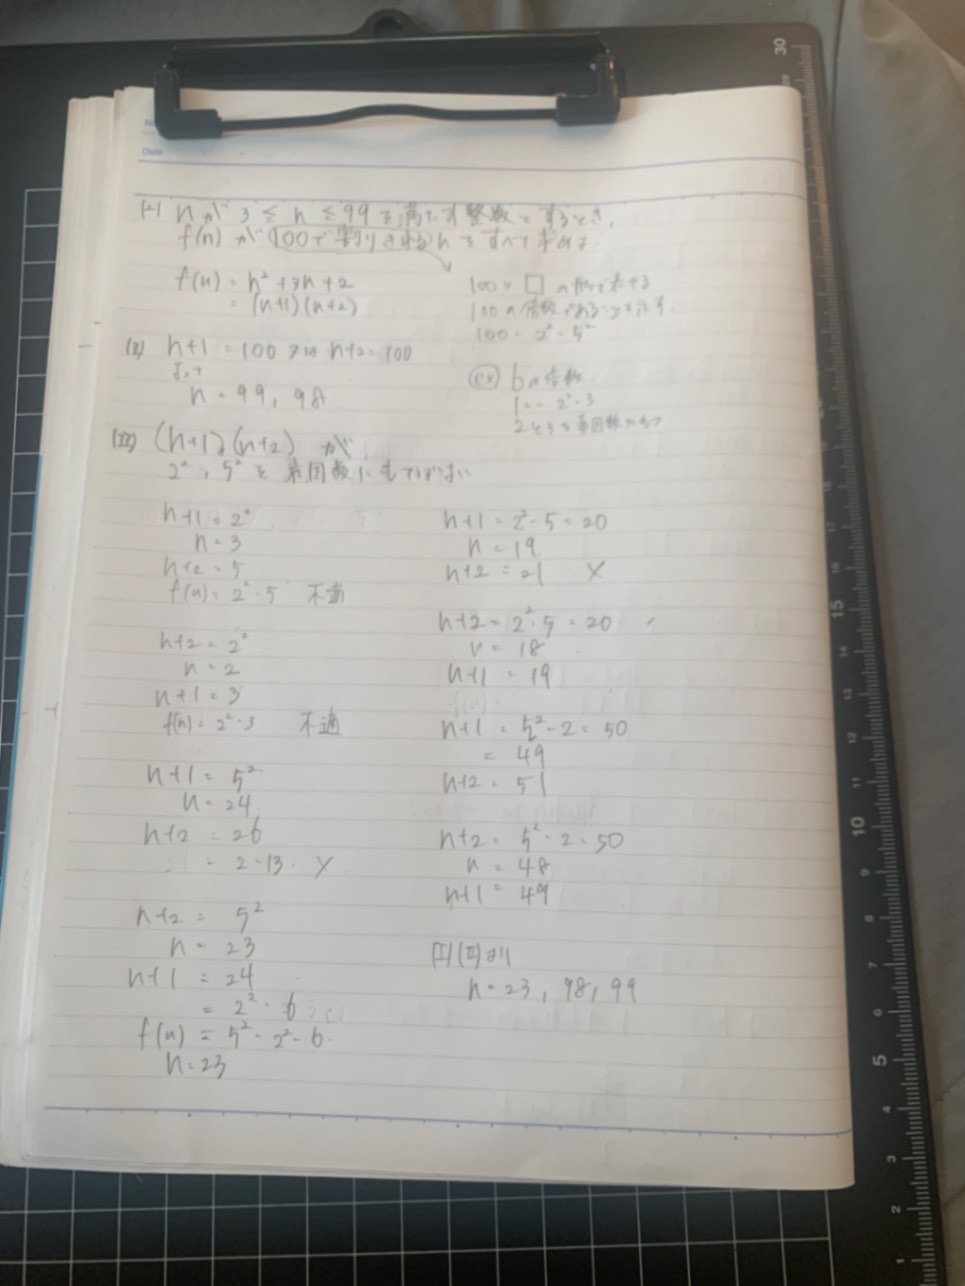 Date
nが 3 ≤ n ≤ 99 を満たす整数とするとき,
f(n) が 100で割りきれる n をすべて求める
f(n) = n² + 3n + 2
= (n+1)(n+2)
100 × □ の形で表せる
100の倍数であることを示す.
100 = 2²・5²
(I) n+1 = 100 または n+2 = 100
よって
n = 99, 98
(ex) 6の倍数
2と3を素因数にもつ
(II) (n+1)(n+2) が,
2², 5² を素因数にもてばよい
n+1 = 2²
n = 3
n+2 = 5
f(n) = 2²・5 不適
n+2 = 2²
n = 2
n+1 = 3
f(n) = 2²・3 不適
n+1 = 5²
n = 24
n+2 = 26
= 2・13. ×
n+2 = 5²
n = 23
n+1 = 24
= 2²・6
f(n) = 5²・2²・6.
n = 23
n+1 = 2²・5 = 20
n = 19
n+2 = 21 ×
n+2 = 2²・5 = 20
n = 18
n+1 = 19
n+1 = 5²・2 = 50
= 49
n+2 = 51
n+2 = 5²・2 = 50
n = 48
n+1 = 49
(I)(II)より
n = 23, 98, 99
30
15
14
13
12
10
9
8
7
6
5
4
3
2
1